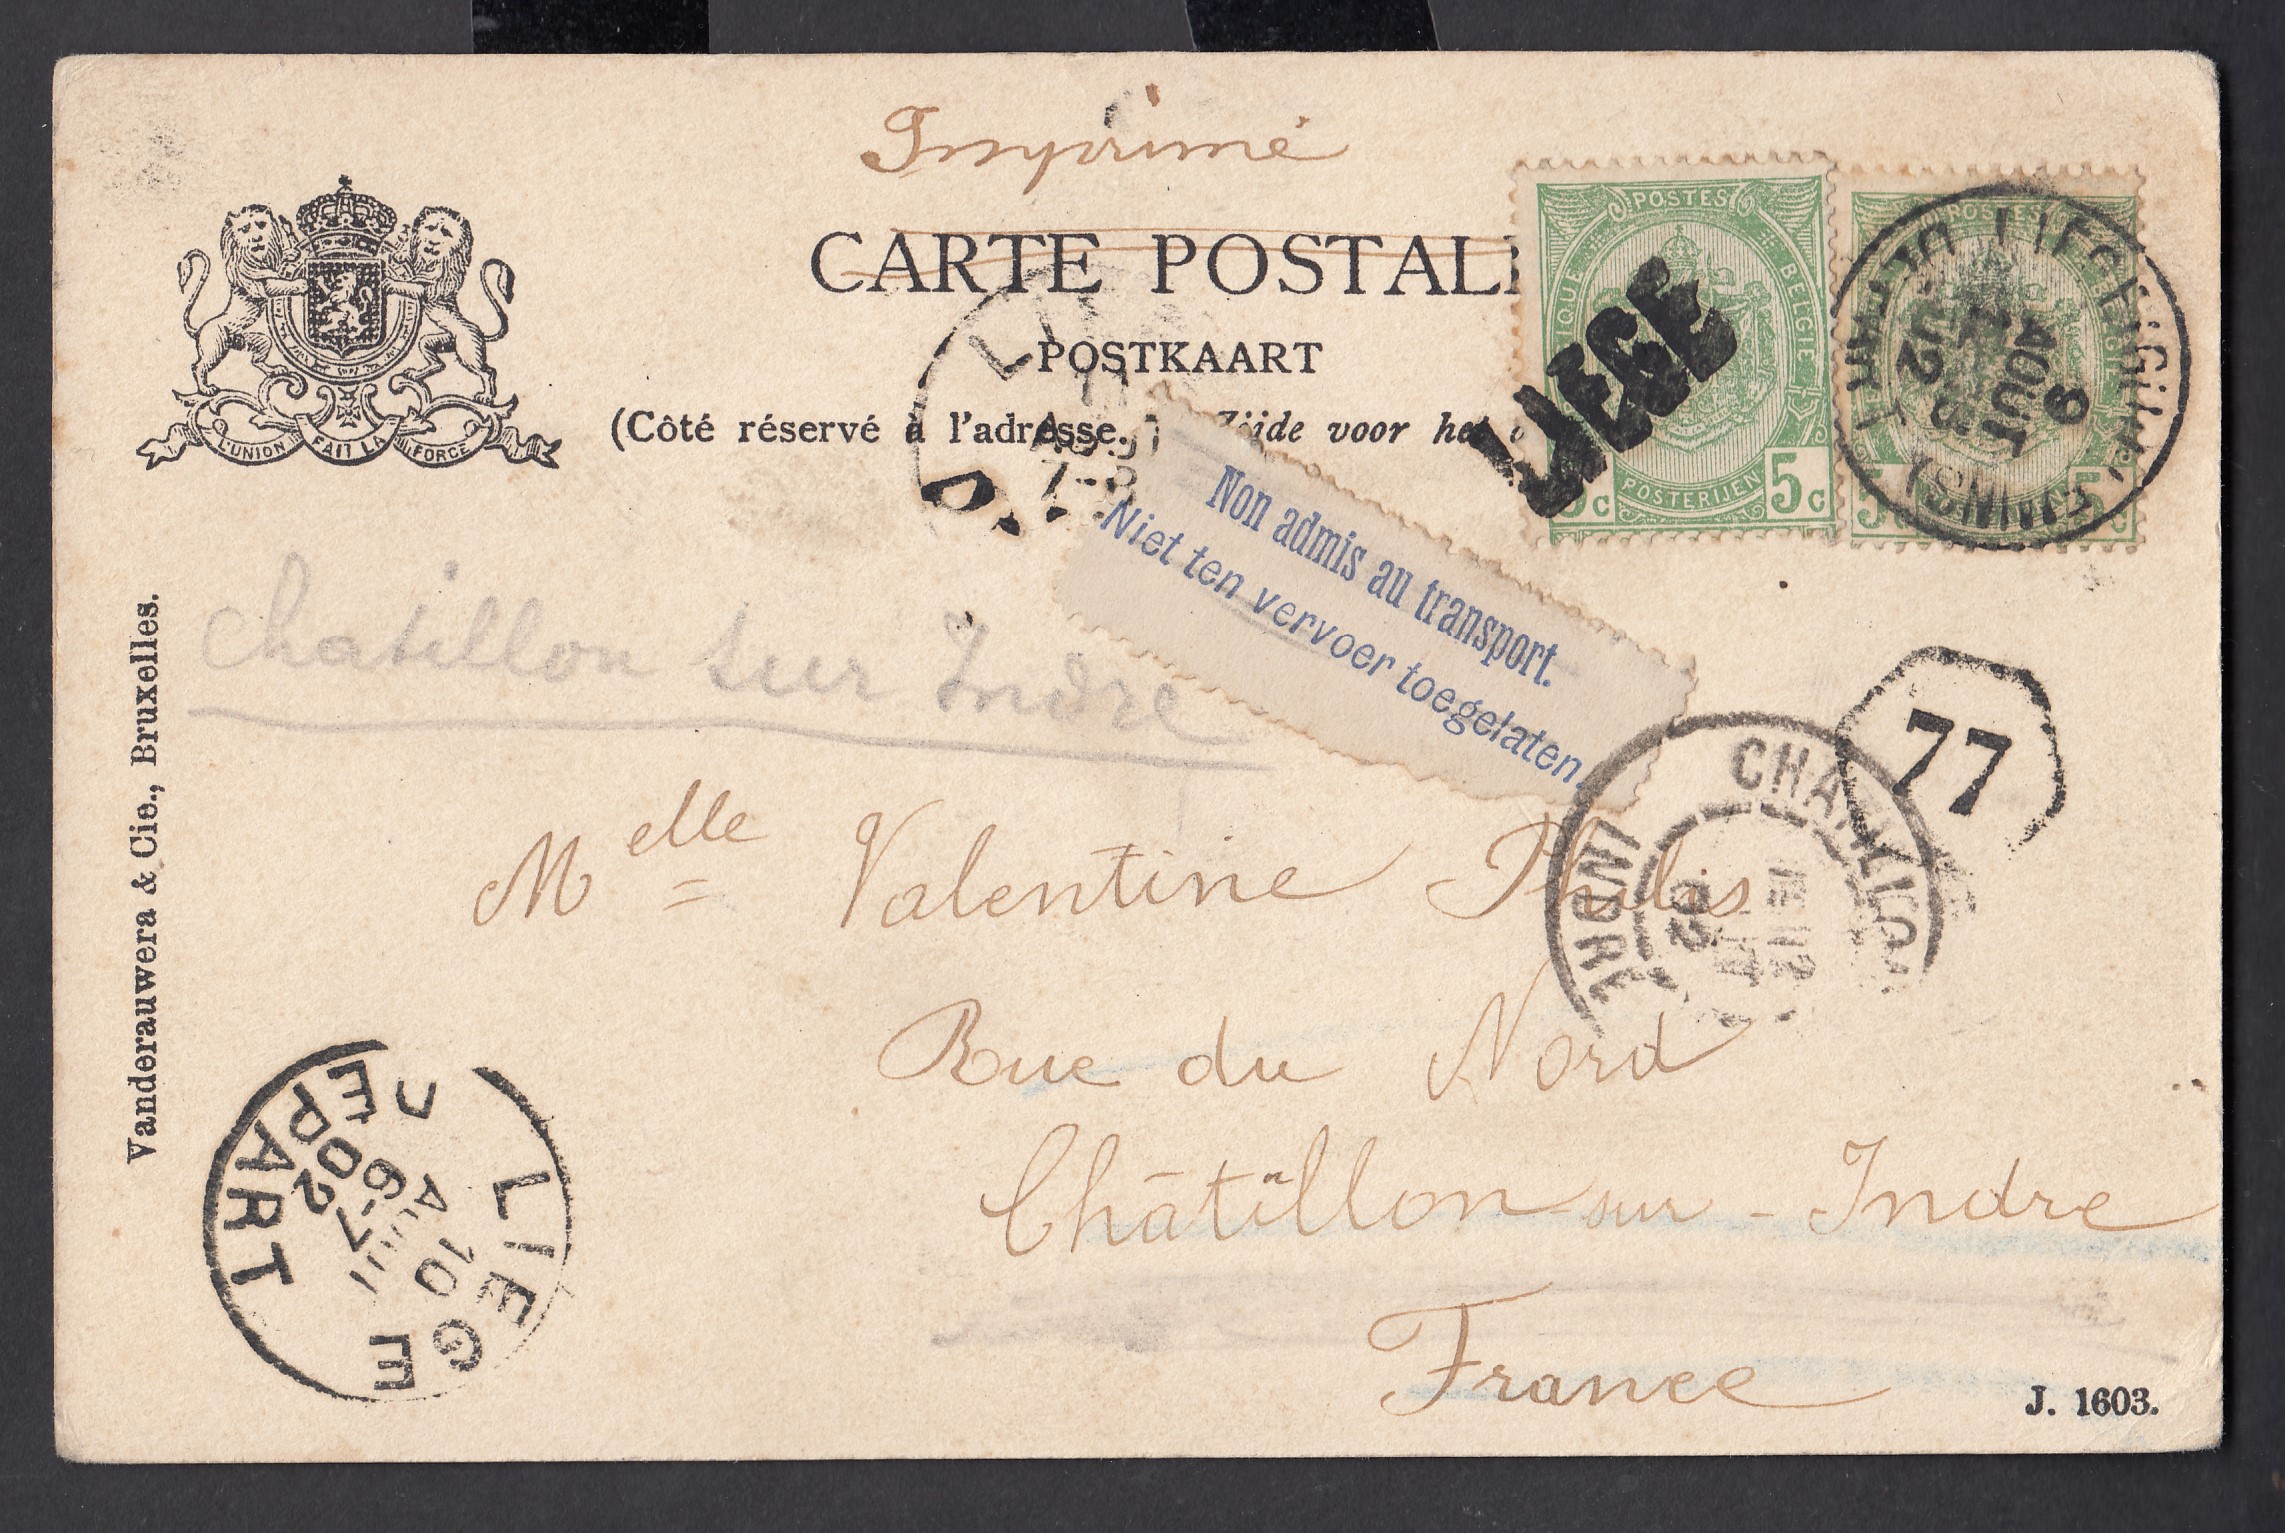 Imprimé
CARTE POSTAL
POSTKAART
(Côté réservé à l'adresse. Zijde voor het
L'UNION FAIT LA FORCE
POSTES
BELGIE
POSTERIJEN
5c
LIEGE
POSTES
5c
DEPART
9
AOUT
Non admis au transport.
Niet ten vervoer toegelaten.
Chatillon sur Indre
77
Vanderauwera & Cie., Bruxelles.
Melle Valentine
INDRE
02
Rue du Nord
Châtillon-sur-Indre
France
LIEGE
DEPART
10
6-7
02
J. 1603.